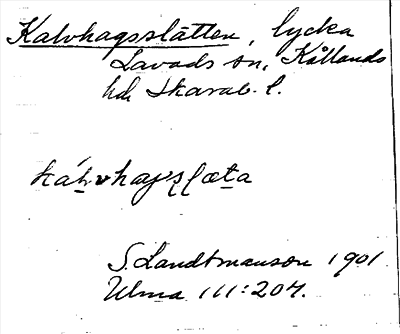 Kalvhagsslätten, lycka
Lavads sn, Kållands
hd Skarab. l.
S. Landtmanson 1901
Ulma 111:204.